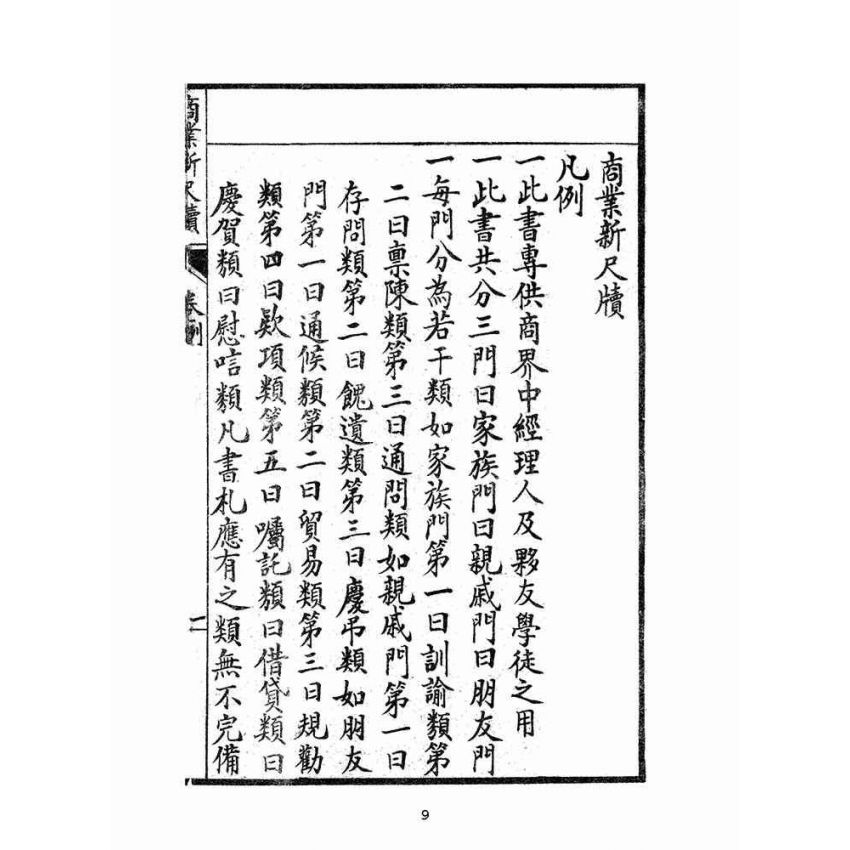 商業新尺牘
凡例
一此書專供商界中經理人及夥友學徒之用
一此書共分三門曰家族門曰親戚門曰朋友門
一每門分為若干類如家族門第一曰訓諭類第
二曰稟陳類第三曰通問類如親戚門第一曰
存問類第二曰餽遺類第三曰慶吊類如朋友
門第一曰通候類第二曰貿易類第三曰規勸
類第四曰欵項類第五曰囑託類曰借貸類曰
慶賀類曰慰唁類凡書札應有之類無不完備
商業新尺牘
一
9